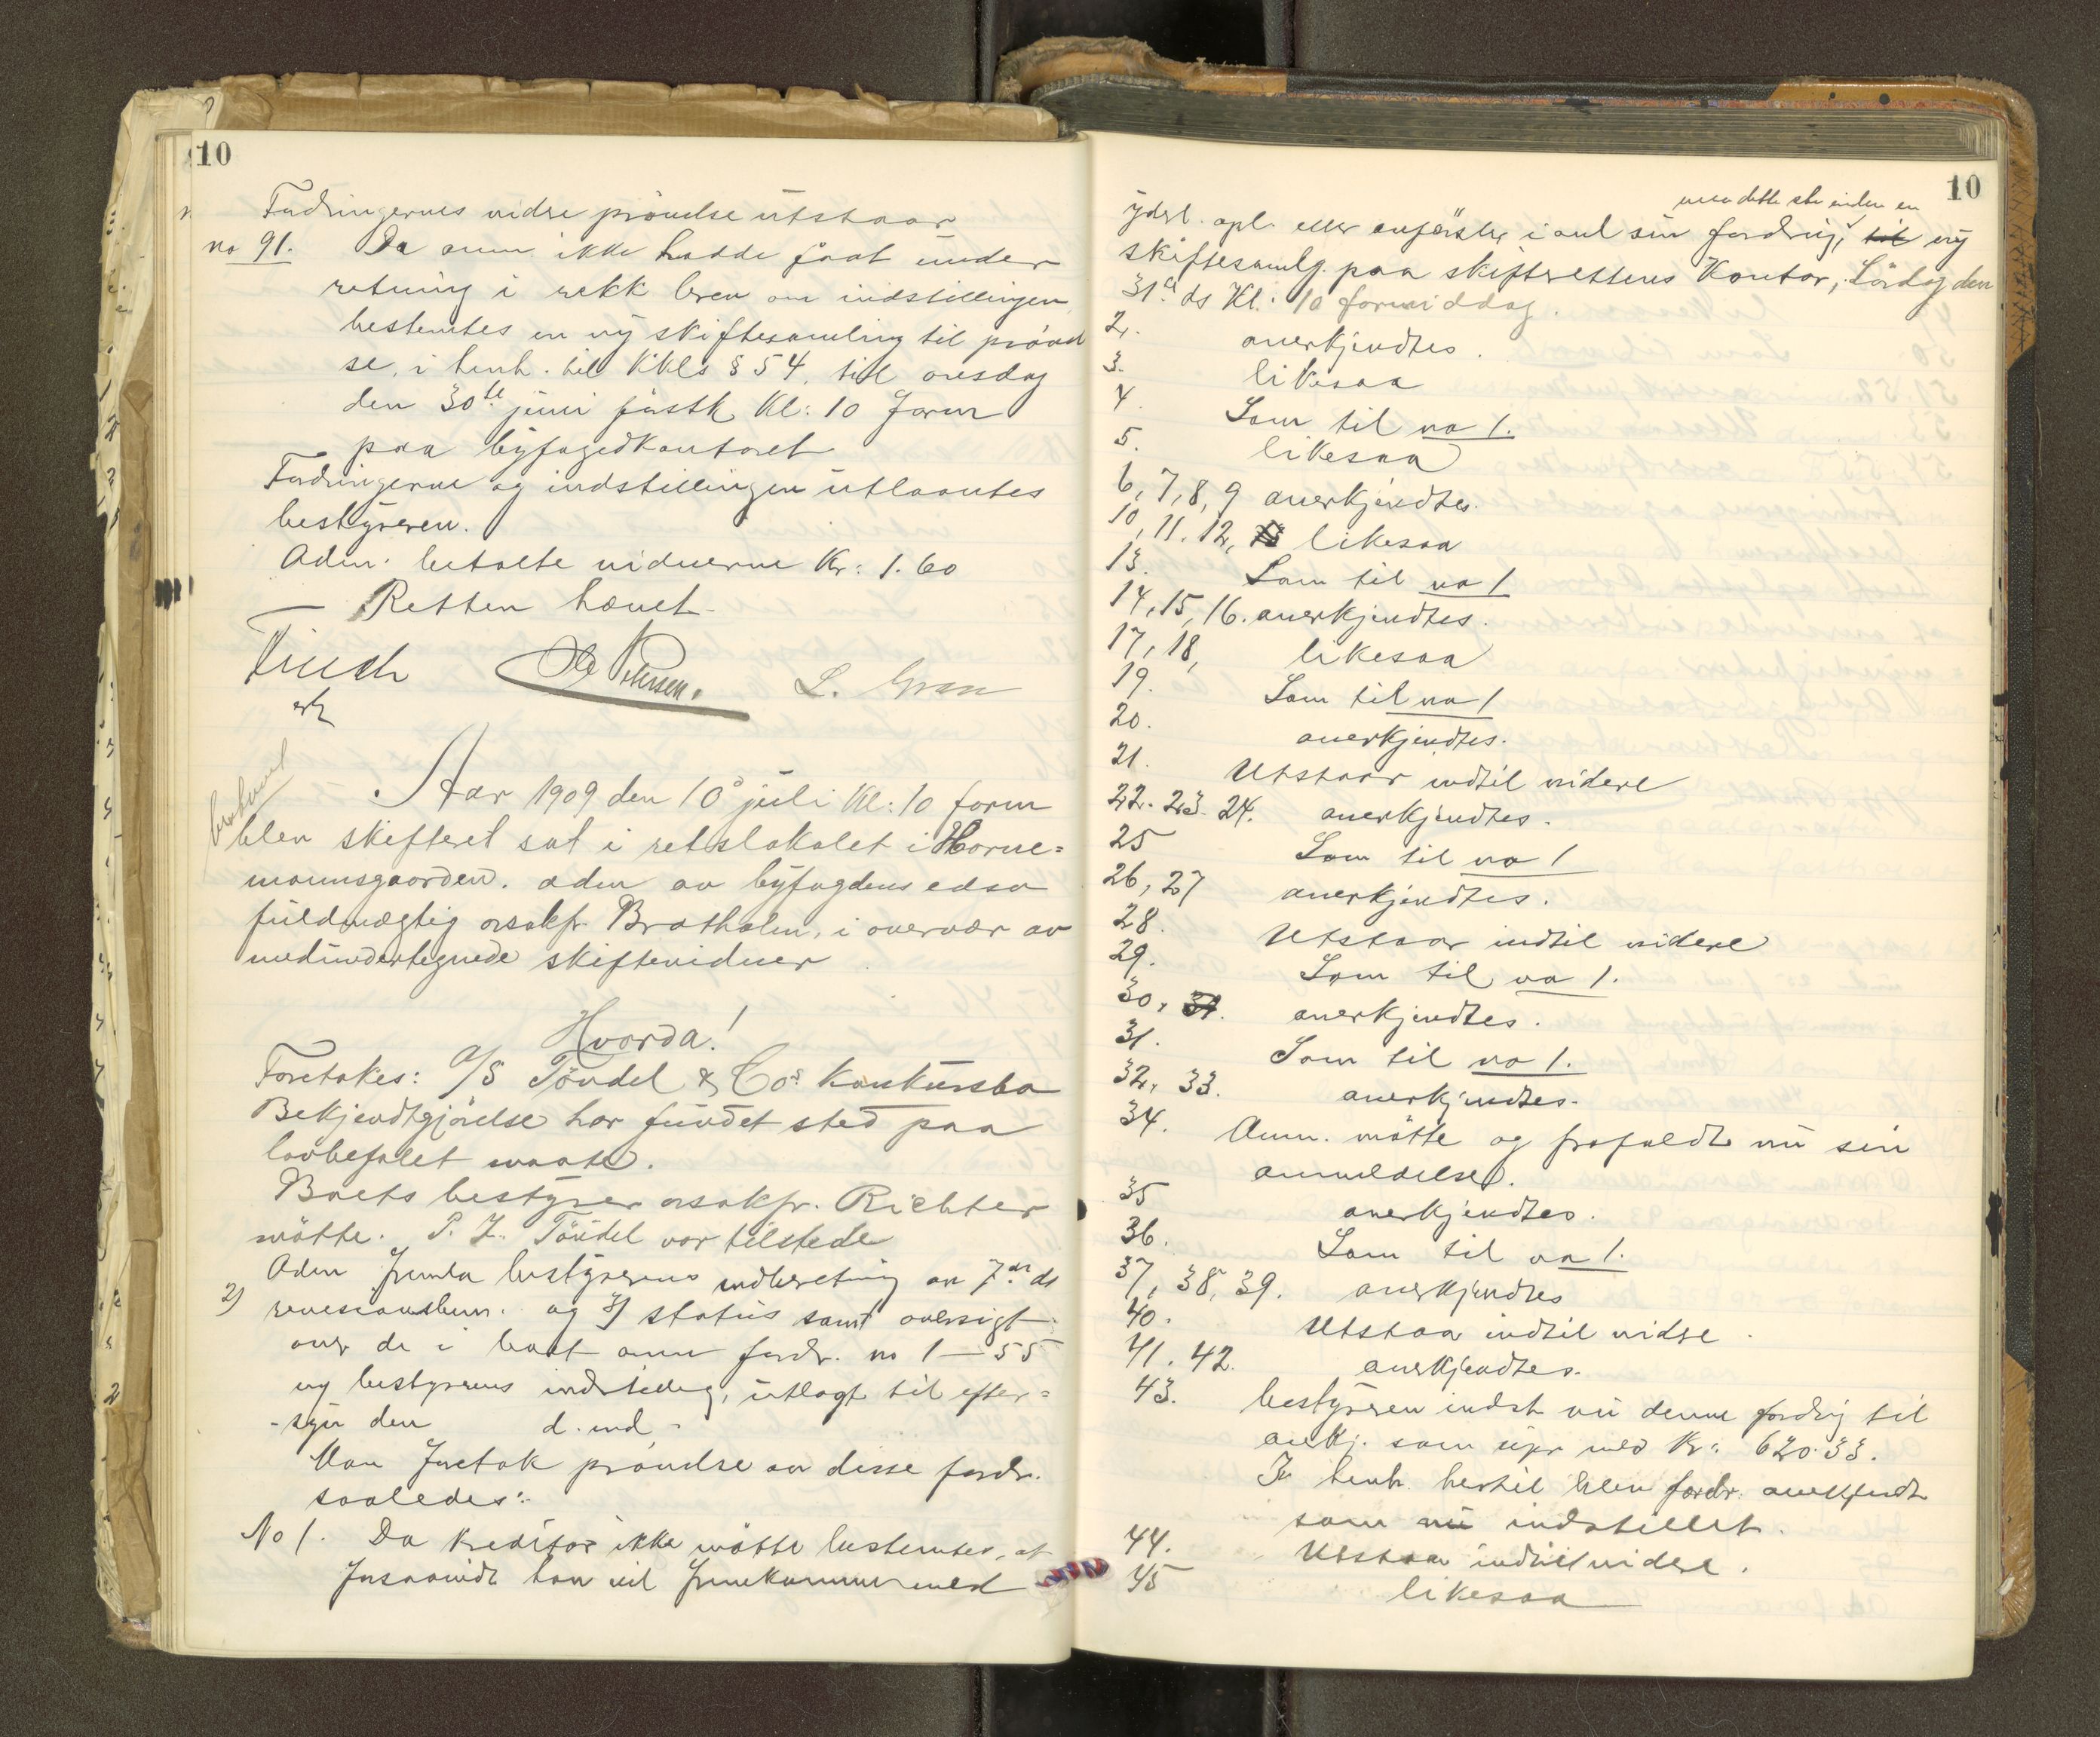 10
Fordringernes videre prövelse utstaar
no 91. Da anm. ikke hadde faat under
retning i rekk brev om indstillingen
bestemtes en ny skiftesamling til prövel
se, i henh. til KKls § 54, til onsdag
den 30te juni förstk Kl: 10 form
paa byfogedkontoret
Fordringerne og indstillingen utlaantes
bestyreren.
Adm. betalte vidnerne Kr: 1.60
Retten hævet
Finch
Ole Petersen.
L. Gran
Aar 1909 den 10 juli Kl: 10 form
blev skifteret sat i retslokalet i Horne=
mannsgaarden. adm av byfogdens edsv
fuldmægtig osakf. Bratholm, i overvær av
medundertegnede skiftevidner
Hvorda!
Foretokes: A/S Töndel & Cos konkursbo
Bekjendtgjörelse har fundet sted paa
lovbefalet maate.
Boets bestyrer osakfr. Richter
mötte. P. Z. Töndel var tilstede
Adm fremla bestyrerens indberetning av 7de ds
2) og 3) status samt oversigt
over de i boet anm fordr. no 1 – 55
og bestyrerens indstilling, utlagt til efter=
-syn den d. md
Man foretok prövelse av disse fordr.
saaledes:
No 1. Da kreditor ikke mötte bestemtes, at
forsaavidt han vil fremkomme med
10
men dette ske inden en
yderl. opl. eller anförsler i anl sin fordring, til ny
skiftesamlg. paa skifterettens Kontor, Lördag den
31te ds Kl: 10 formiddag.
2. anerkjendtes.
3. likesaa
4. Som til no 1.
5. likesaa
6, 7, 8, 9 anerkjendtes.
10, 11. 12, 13 likesaa
13. Som til no 1
14, 15, 16. anerkjendtes.
17, 18, likesaa
19. Som til no 1
20. anerkjendtes.
21. Utstaar indtil videre
22. 23. 24. anerkjendtes.
25 Som til no 1
26, 27 anerkjendtes.
28. Utstaar indtil videre
29. Som til no 1.
30, 31. anerkjendtes.
31. Som til no 1.
32, 33. anerkjendtes.
34. Anm. mötte og frafaldt nu sin
anmeldelse.
35 anerkjendtes.
36. Som til no 1.
37, 38, 39. anerkjendtes
40. Utstaa indtil vidre.
41. 42. anerkjendtes.
43. bestyreren indst nu denne fordrig til
anerkj. som upr med Kr: 620.33.
I henh. hertil blev fordr. anerkjendt
som nu indstillet.
44. Utstaa indtil videre.
45 likesaa